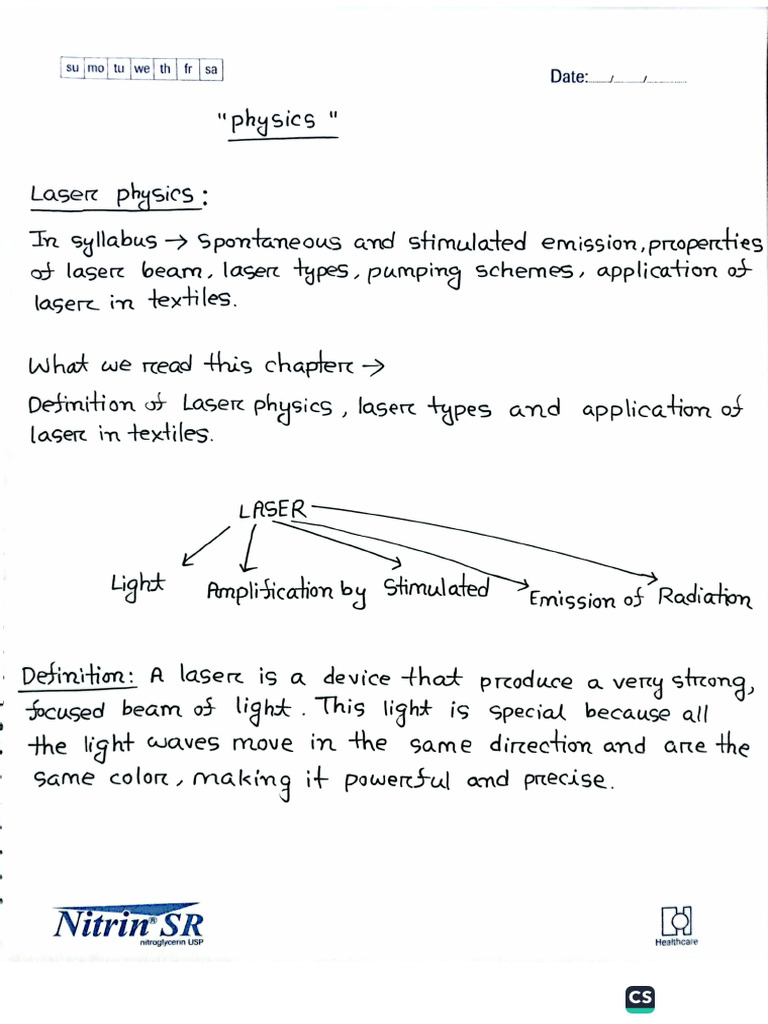 su mo tu we th fr sa
Date:...../...../..........
"physics"
Laser physics:
In syllabus → Spontaneous and stimulated emission, properties
of laser beam, laser types, pumping schemes, application of
laser in textiles.
What we read this chapter →
Definition of Laser physics, laser types and application of
laser in textiles.
LASER
Light Amplification by Stimulated Emission of Radiation
Definition: A laser is a device that produce a very strong,
focused beam of light. This light is special because all
the light waves move in the same direction and are the
same color, making it powerful and precise.
Nitrin® SR
nitroglycerin USP
Healthcare
CS